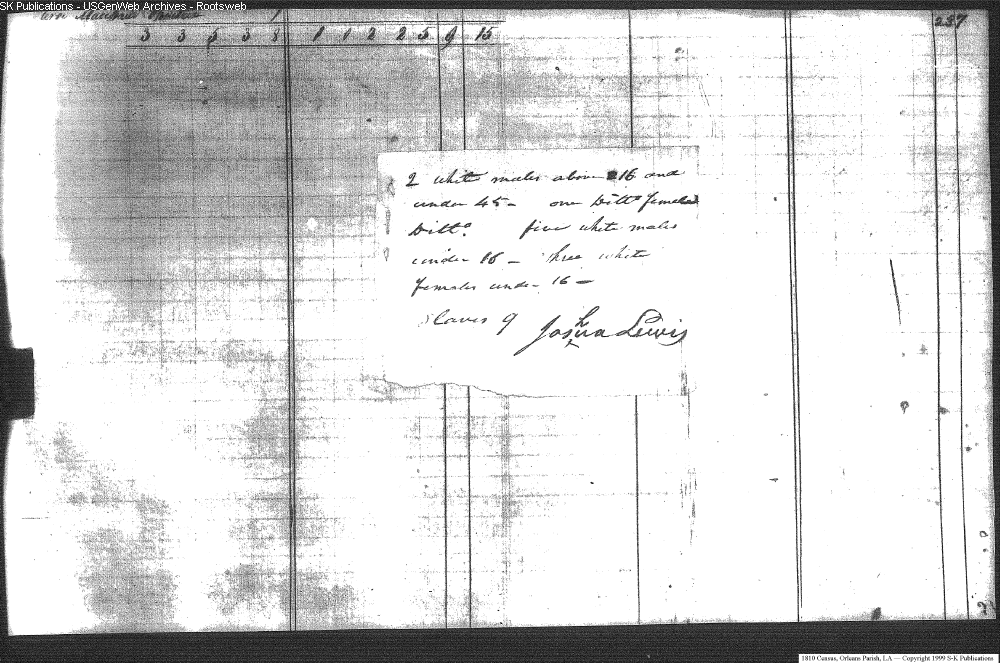 SK Publications - USGenWeb Archives - Rootsweb
237
3 3 5 3 8 1 1 2 2 5 9 15
2 white males above 16 and
under 45 - one Ditto female
Ditto. five white males
under 16 - three white
females under 16 -
Slaves 9 Joshua Lewis
1810 Census, Orleans Parish, LA — Copyright 1999 S-K Publications